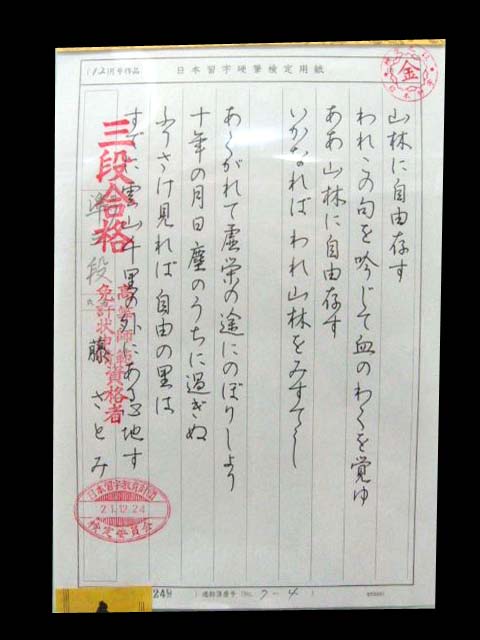 (12)月号作品
日本習字硬筆検定用紙
金
山林に自由存す
われこの句を吟じて血のわくを覚ゆ
ああ山林に自由存す
いかなればわれ山林をみすてし
あくがれて虚栄の途にのぼりしより
十年の月日塵のうちに過ぎぬ
ふりさけ見れば自由の里は
すでに雲山千里の外にある心地す
三段合格
準三段
高等師範
免許状 資格者
藤 さとみ
日本習字教育財団
21.12.24
検定委員会
249
(No. 7-4)